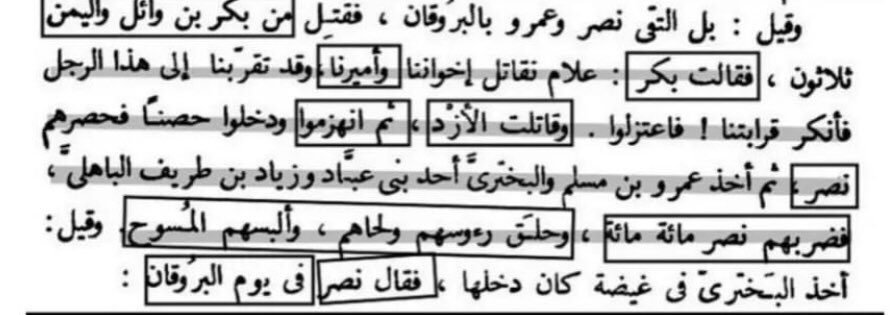 وقيل : بل التقى نصر وعمرو بالبرُوقان ، فقتل من بكر بن وائل واليمن
ثلاثون ، فقالت بكر : علام نقاتل إخواننا وأميرنا ، وقد تقرّبنا إلى هذا الرجل
فأنكر قرابتنا ! فاعتزلوا . وقاتلت الأزْد ، ثم انهزموا ودخلوا حصنًا فحصرهم
نصر ، ثم أخذ عمرو بن مسلم والبختريّ أحد بنى عبّاد وزياد بن طريف الباهلىّ ،
فضربهم نصر مائة مائة ، وحلَق رءوسهم ولحاهم ، وألبسهم المُسوح . وقيل :
أخذ البَختَرىّ فى غيضة كان دخلها ، فقال نصر فى يوم البرُوقان :